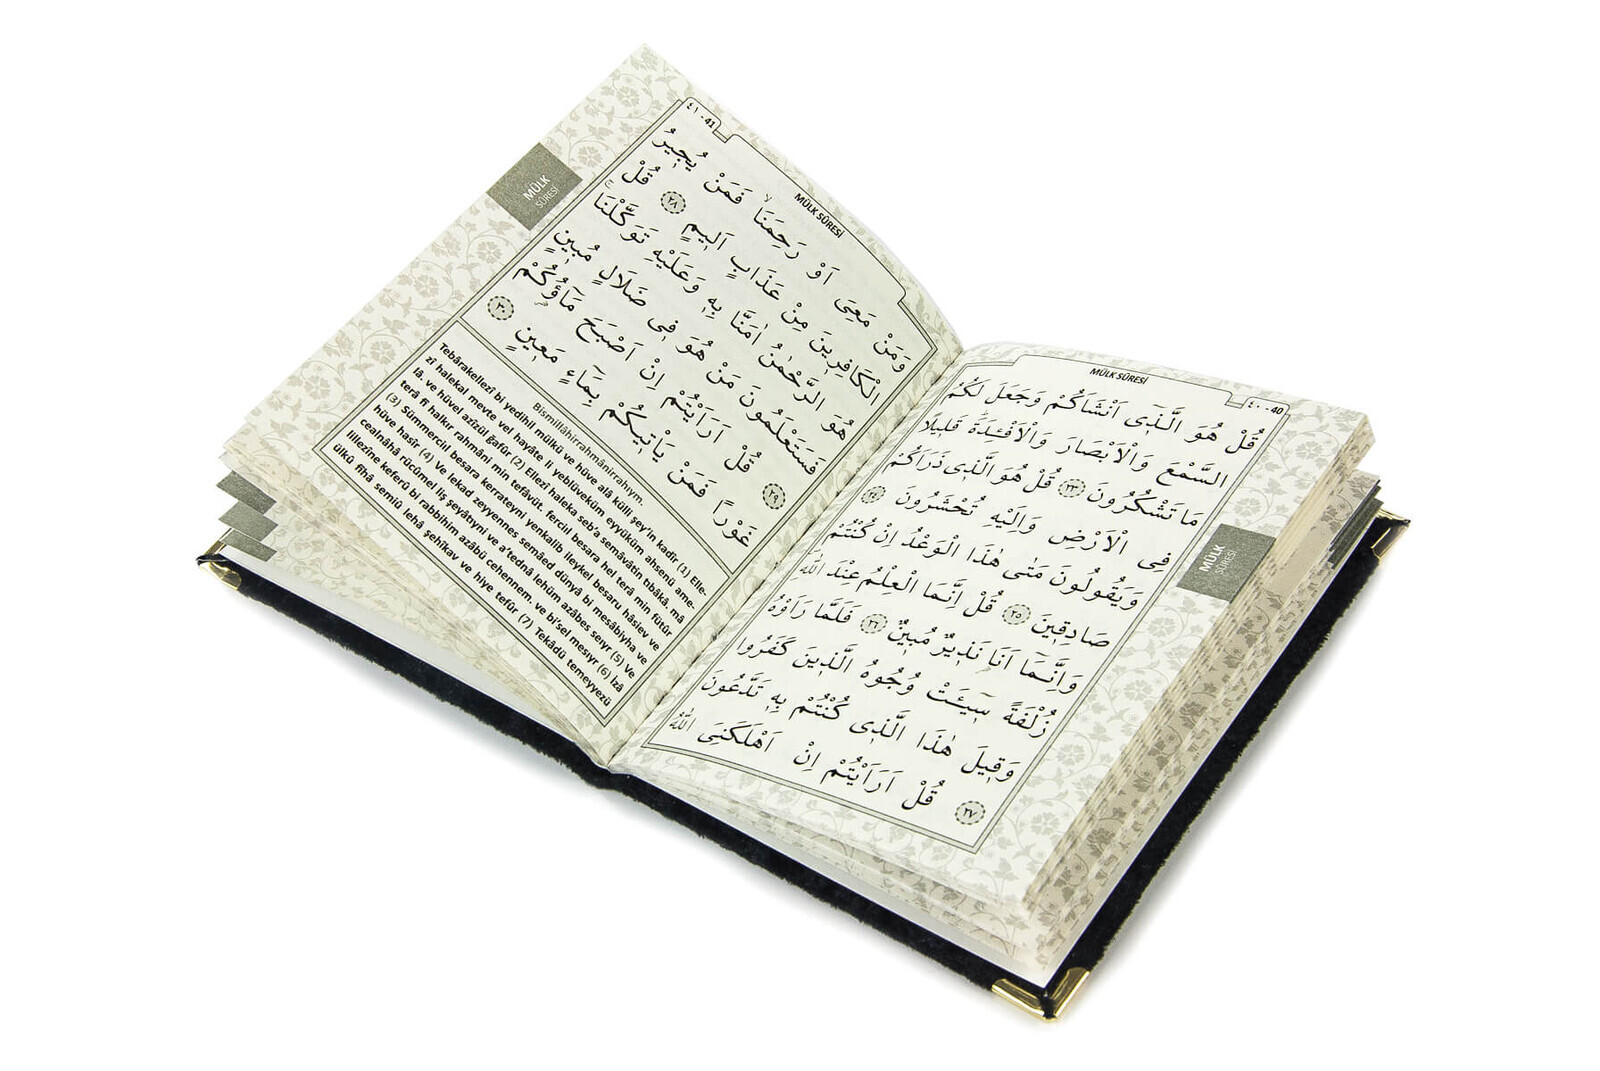 MÜLK SÛRESİ
٤٠ - 40
قُلْ هُوَ الَّذ۪ٓي اَنْشَاَكُمْ وَجَعَلَ لَكُمُ
السَّمْعَ وَالْاَبْصَارَ وَالْاَفْـِٔدَةَۜ قَل۪يلًا
مَا تَشْكُرُونَ ﴿٢٣﴾ قُلْ هُوَ الَّذ۪ي ذَرَاَكُمْ
فِي الْاَرْضِ وَاِلَيْهِ تُحْشَرُونَ ﴿٢٤﴾
وَيَقُولُونَ مَتٰى هٰذَا الْوَعْدُ اِنْ كُنْتُمْ
صَادِق۪ينَ ﴿٢٥﴾ قُلْ اِنَّمَا الْعِلْمُ عِنْدَ اللّٰهِۖ
وَاِنَّمَٓا اَنَا۬ نَذ۪يرٌ مُب۪ينٌ ﴿٢٦﴾ فَلَمَّا رَاَوْهُ
زُلْفَةً س۪ٓيـَٔتْ وُجُوهُ الَّذ۪ينَ كَفَرُوا
وَق۪يلَ هٰذَا الَّذ۪ي كُنْتُمْ بِه۪ تَدَّعُونَ
﴿٢٧﴾ قُلْ اَرَاَيْتُمْ اِنْ اَهْلَكَنِيَ اللّٰهُ
MÜLK
SÛRESİ
MÜLK SÛRESİ
٤١ - 41
وَمَنْ مَعِيَ اَوْ رَحِمَنَاۙ فَمَنْ يُج۪يرُ
الْكَافِر۪ينَ مِنْ عَذَابٍ اَل۪يمٍ ﴿٢٨﴾ قُلْ
هُوَ الرَّحْمٰنُ اٰمَنَّا بِه۪ وَعَلَيْهِ تَوَكَّلْنَاۚ
فَسَتَعْلَمُونَ مَنْ هُوَ ف۪ي ضَلَالٍ مُب۪ينٍ
﴿٢٩﴾ قُلْ اَرَاَيْتُمْ اِنْ اَصْبَحَ مَٓاؤُ۬كُمْ
غَوْرًا فَمَنْ يَأْت۪يكُمْ بِمَٓاءٍ مَع۪ينٍ ﴿٣٠﴾
MÜLK
SÛRESİ
Bismillâhirrahmânirrahıym.
Tebârakellezî bi yedihil mülkü ve hüve alâ külli şey'in kadîr (1) Elle-
zî halekal mevte vel hayâte li yeblüveküm eyyüküm ahsenü ame-
lâ. ve hüvel azîzül ğafûr (2) Ellezî haleka seb'a semâvâtin tıbâkâ. mâ
terâ fî halkır rahmâni min tefâvüt. ferciıl besara hel terâ min fütûr
(3) Sümmerciıl besara kerrateyni yenkalib ileykel besaru hâsiev ve
hüve hasîr (4) Ve lekad zeyyennes semâed dünyâ bi mesâbiyha ve
cealnâhâ rücûmel liş şeyâtıyni ve a'tednâ lehüm azâbes seıyr (5) Ve
lillezîne keferû bi rabbihim azâbü cehennem. ve bi'sel mesıyr (6) İzâ
ülkû fîhâ semiû lehâ şehîkav ve hiye tefûr (7) Tekâdü temeyyezü